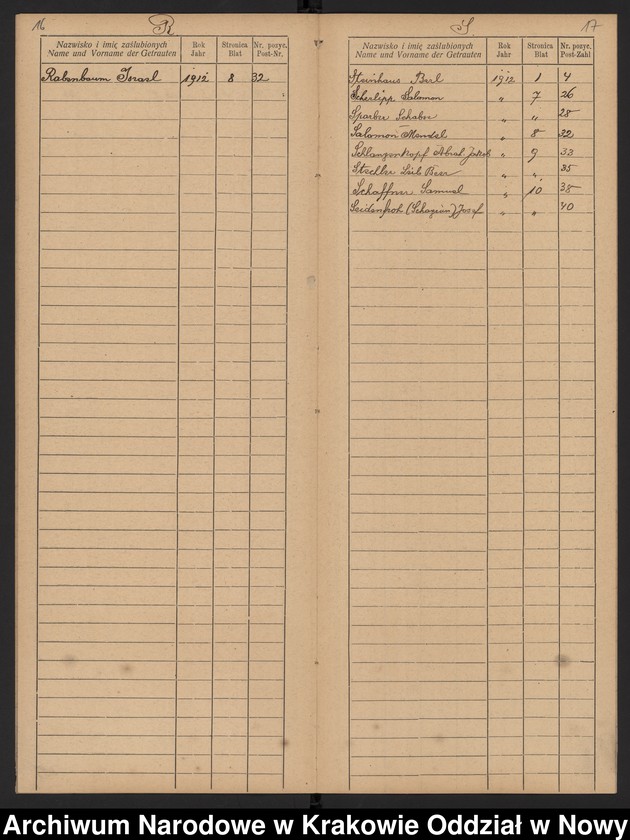 16
R
Nazwisko i imię zaślubionych Rok Stronica Nr. pozyc.
Name und Vorname der Getrauten Jahr Blat Post-Nr.
Rabenbaum Israel 1912 8 32
S
17
Nazwisko i imię zaślubionych Rok Stronica Nr. pozyc.
Name und Vorname der Getrauten Jahr Blat Post-Zahl
Steinhaus Berl 1912 1 4
Scherlipp Salomon " 7 26
Sparber Schabse " " 28
Salomon Mendel " 8 32
Schlangenkopf Abrah. Jakob " 9 33
Steller Leib Beer " " 35
Schaffner Samuel " 10 38
Seidenfroh Josef " " 40
Archiwum Narodowe w Krakowie Oddział w Nowy